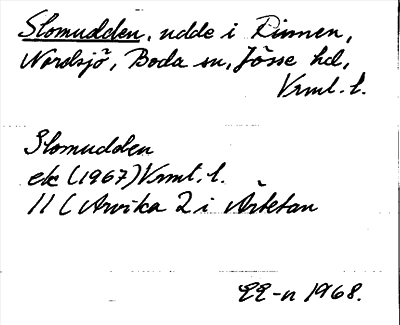 Slomudden, udde i Rinnen,
Nordsjö, Boda sn, Jösse hd,
Vrml. l.
Slomudden
ek (1967) Vrml. l.
11 C Arvika 2 i Årletan
EE-n 1968.